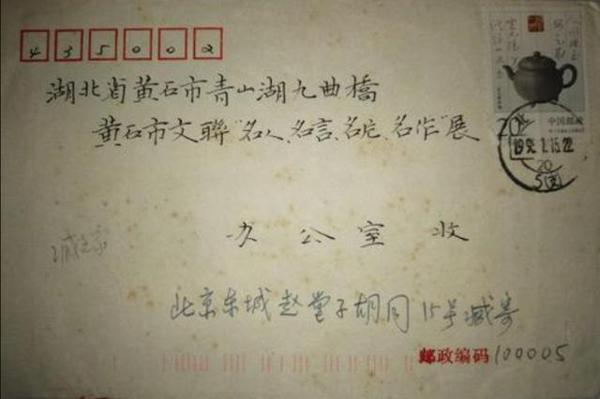 435002
湖北省黄石市青山湖九曲橋
黄石市文聯“名人、名言、名句、名作”展
办公室 收
北京东城赵堂子胡同15号臧寄
邮政编码 100005
中国邮政